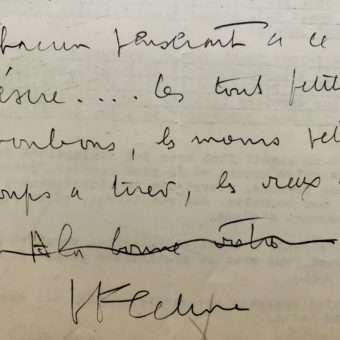 hacun penserait à ce
ésire.... les tout petit
bonbons, les moins pet
oups à tirer, les vieux
A la bonne
LF Celine